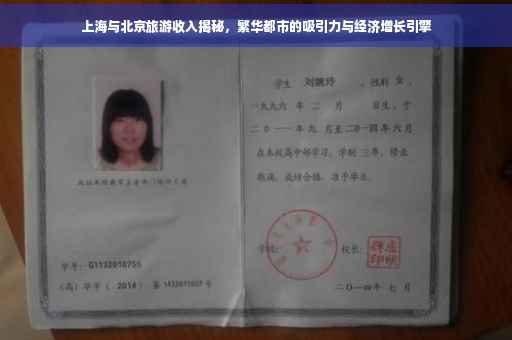 上海与北京旅游收入揭秘，繁华都市的吸引力与经济增长引擎
学生 刘婉玲 ，性别 女 ，
一九九六 年 二 月 日生，于
二〇一一 年 九 月至 二〇一四 年 六 月
在本校高中部学习，学制 三 年，修业
期满，成绩合格，准予毕业。
学校： 校长：
学号： G1132010755
（高）毕字（ 2014 ）第 1432011607 号
二〇一四年 七 月